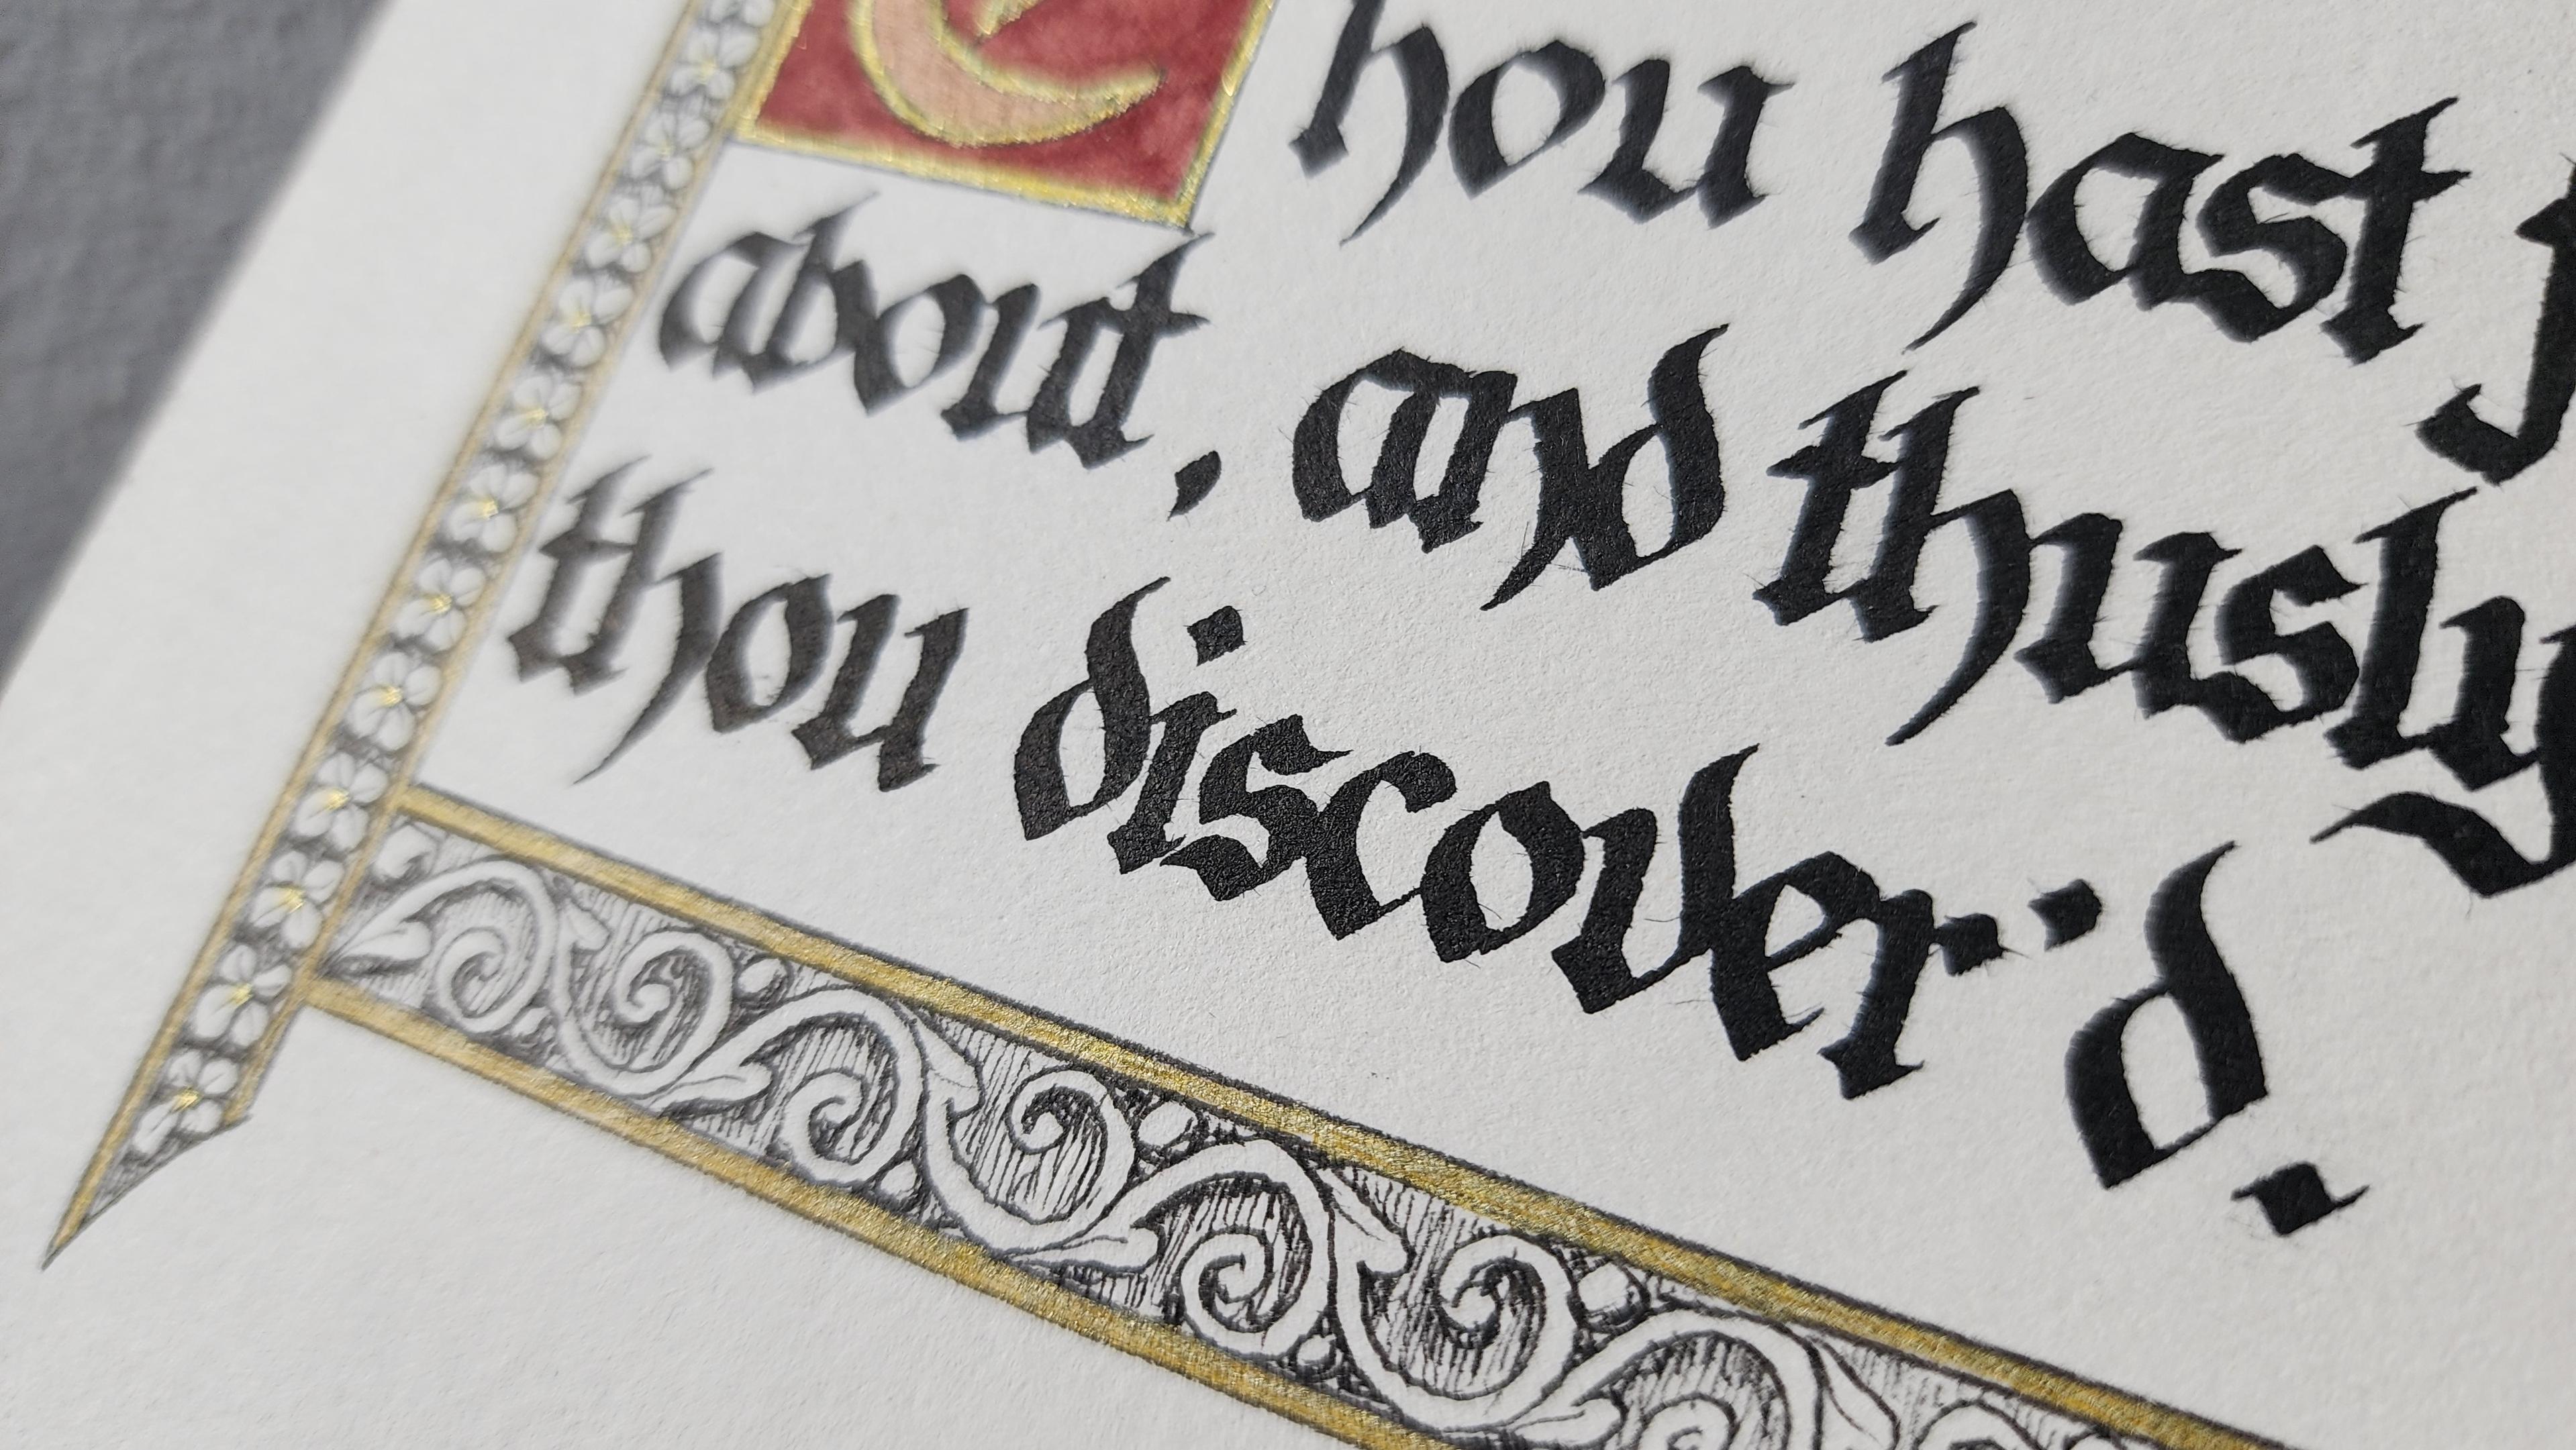 Thou hast
about, and thusly
thou discover'd.